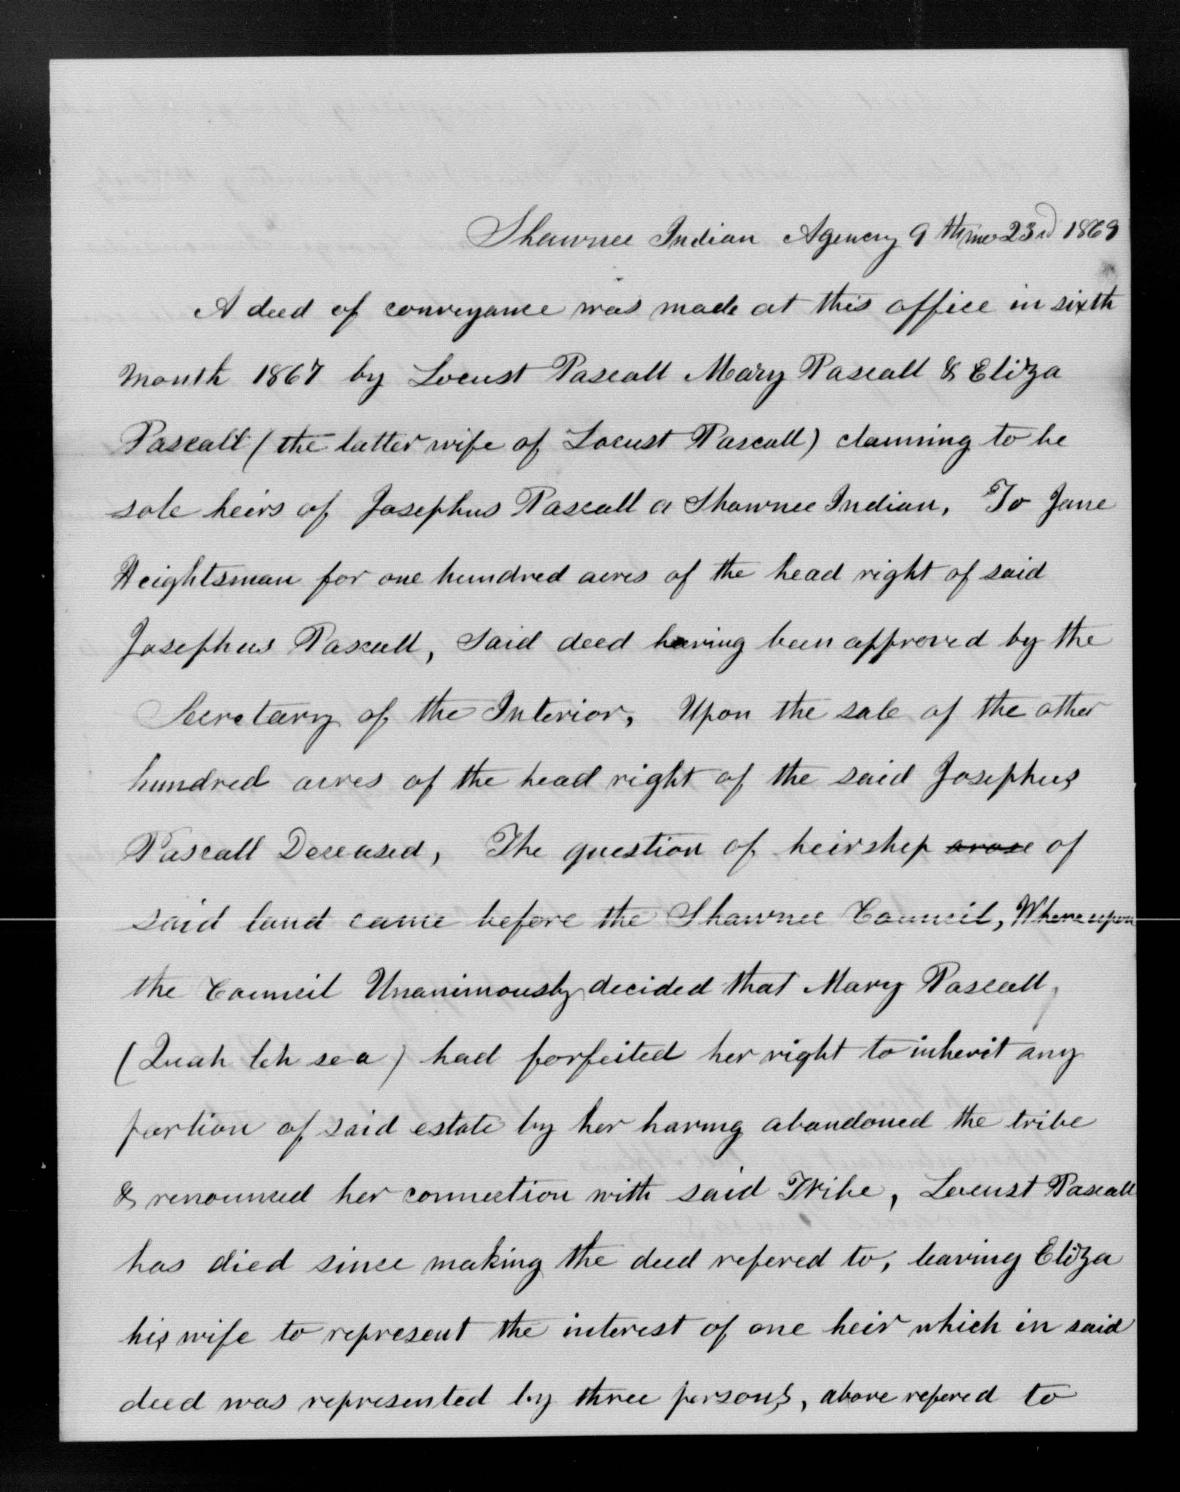 Shawnee Indian Agency 9th mo 23rd 1869
A deed of conveyance was made at this office in sixth
Month 1867 by Locust Pascall Mary Pascall & Eliza
Pascall (the latter wife of Locust Pascall) claiming to be
sole heirs of Josephus Pascall a Shawnee Indian, To Jane
Heightsman for one hundred acres of the head right of said
Josephus Pascall, Said deed having been approved by the
Secretary of the Interior, Upon the sale of the other
hundred acres of the head right of the said Josephus
Pascall Deceased, The question of heirship arose of
said land came before the Shawnee Council, Whereupon
the Council Unanimously decided that Mary Pascall,
(Quah leh sea) had forfeited her right to inherit any
portion of said estate by her having abandoned the tribe
& renounced her connection with said Tribe, Locust Pascall
has died since making the deed refered to, leaving Eliza
his wife to represent the interest of one heir which in said
deed was represented by three persons, above refered to